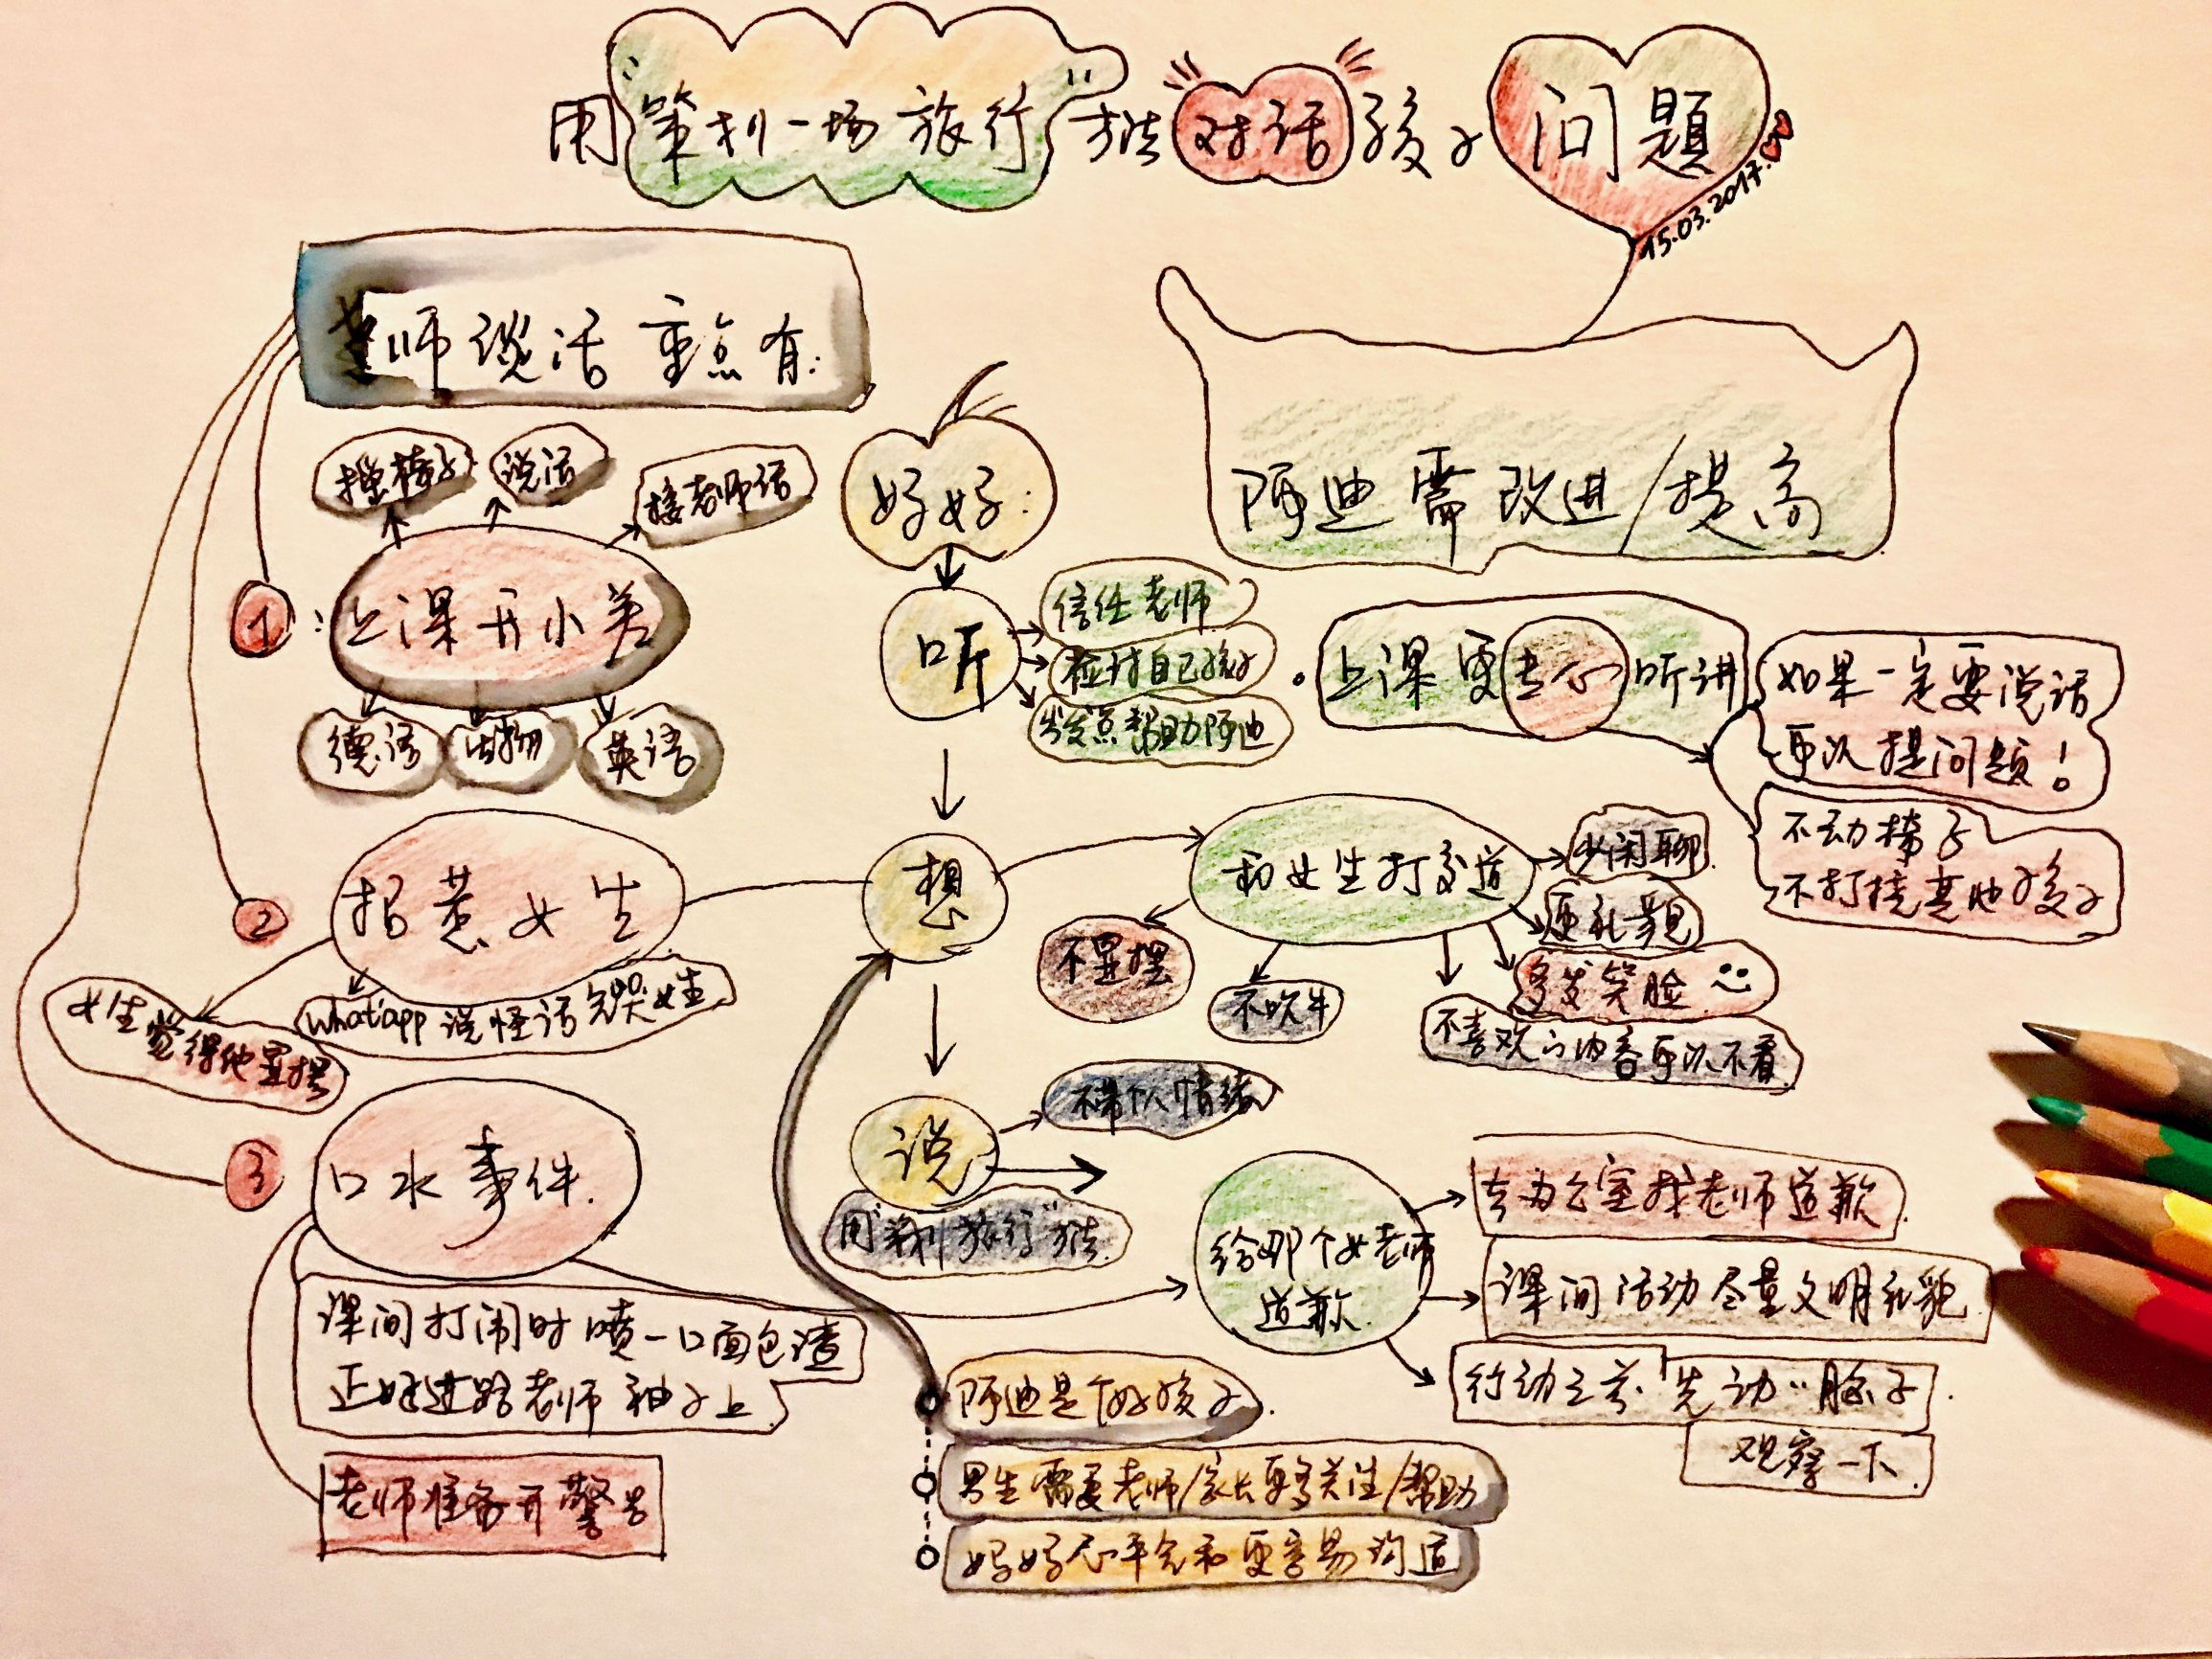 用"策划一场旅行"方法对话孩子问题
15.03.2017.
老师谈话重点有:
椅子
说话
接老师话
1:上课开小差
德语
生物
英语
2
招惹女生
女生觉得他显摆
what'app 说怪话 哭女生
3
口水事件.
课间打闹时喷一口面包渣
正好进路老师袖子上.
老师准备开警告
好好:
听
信任老师
应对自己孩子
出发点帮助阿迪
想
说
不带个人情绪
用"策划旅行"方法.
阿迪是个好孩子.
男生需要老师/家长更多关注/帮助
妈妈心平气和更容易沟通
阿迪需改进/提高
·上课更专心听讲
如果一定要说话
可以提问题!
不动椅子
不打扰其他孩子
和女生打交道
少闲聊.
要礼貌
多发笑脸
不喜欢的内容可以不看
不显摆
不吹牛
给那个女老师
道歉.
去办公室找老师道歉.
课间活动尽量文明礼貌.
行动之前.“先动”脑子.
观察一下.